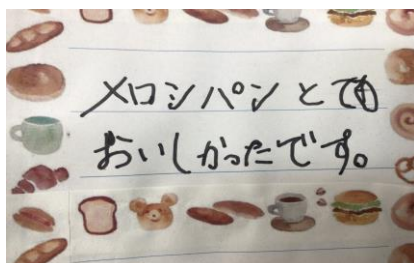 メロンパンとても
おいしかったです。